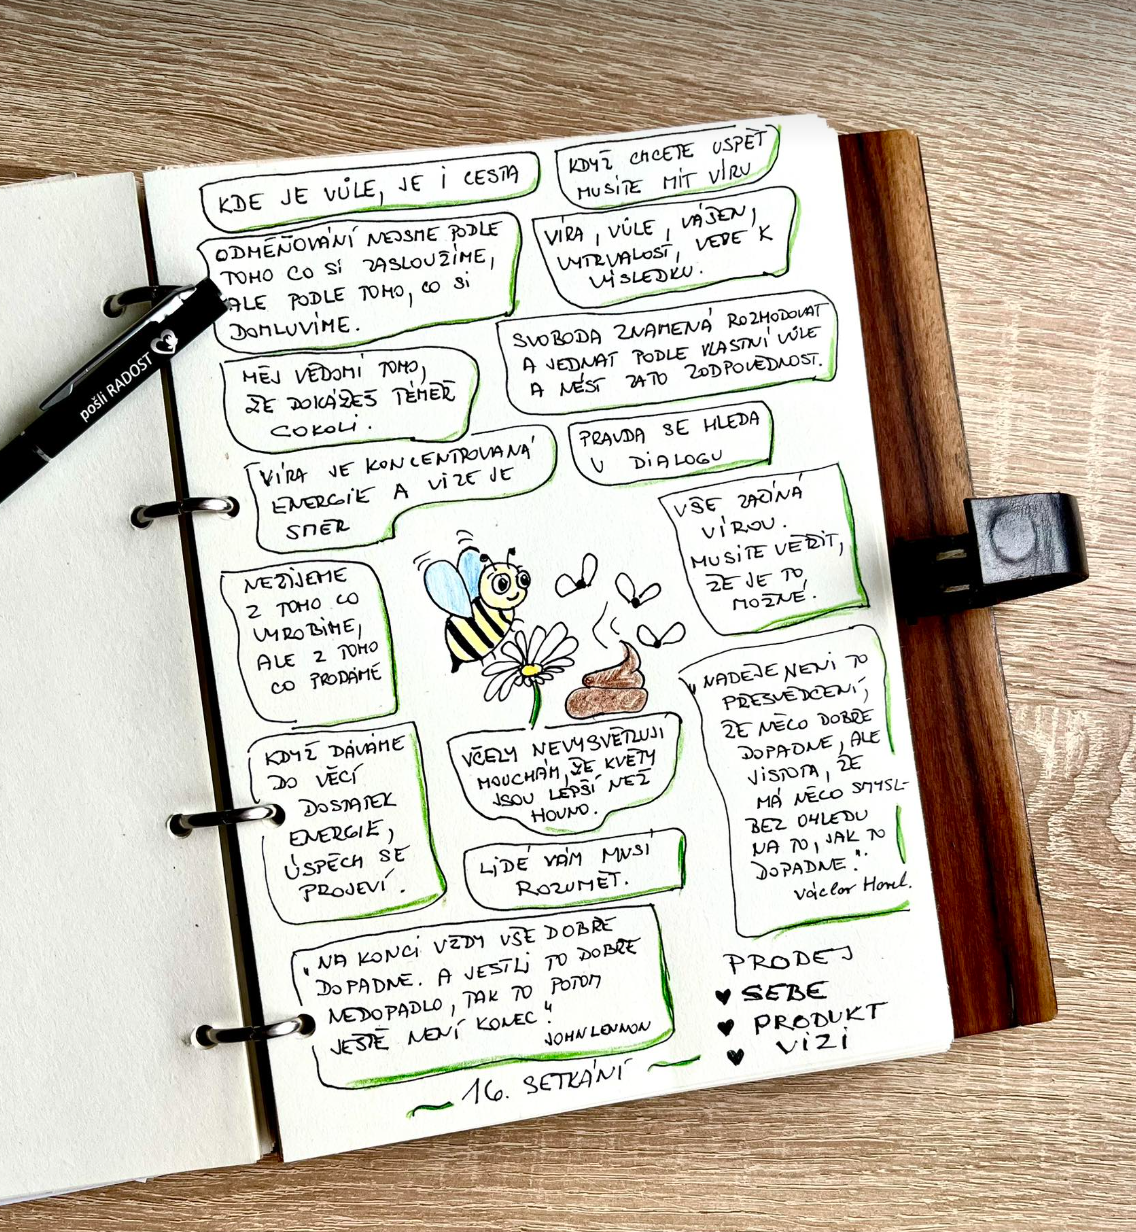 KDE JE VŮLE, JE I CESTA
KDYŽ CHCETE USPĚT
MUSÍTE MÍT VÍRU
ODMĚŇOVÁNÍ NEJSME PODLE
TOHO CO SI ZASLOUŽÍME,
ALE PODLE TOHO, CO SI
DOMLUVÍME.
VÍRA, VŮLE, VÁŠEŇ,
VYTRVALOST, VEDE K
VÝSLEDKU.
SVOBODA ZNAMENÁ ROZHODOVAT
A JEDNAT PODLE VLASTNÍ VŮLE
A NÉST ZATO ZODPOVĚDNOST.
MĚJ VĚDOMÍ TOHO,
ŽE DOKÁŽEŠ TÉMĚŘ
COKOLI.
PRAVDA SE HLEDA
V DIALOGU
VÍRA JE KONCENTROVANÁ
ENERGIE A VIZE JE
SMĚR
VŠE ZAČÍNÁ
VÍROU.
MUSÍTE VĚŘIT,
ŽE JE TO
MOŽNÉ.
NEŽIJEME
Z TOHO CO
VYROBÍME,
ALE Z TOHO
CO PRODÁME
„NADĚJE NENÍ TO
PŘESVĚDČENÍ,
ŽE NĚCO DOBŘE
DOPADNE, ALE
JISTOTA, ŽE
MÁ NĚCO SMYSL-
BEZ OHLEDU
NA TO, JAK TO
DOPADNE“.
Václav Havel.
KDYŽ DÁVÁME
DO VĚCÍ
DOSTATEK
ENERGIE,
ÚSPĚCH SE
PROJEVÍ.
VČELY NEVYSVĚTLUJÍ
MOUCHÁM, ŽE KVĚTY
JSOU LEPŠÍ NEŽ
HOVNO.
LIDÉ VÁM MUSÍ
ROZUMĚT.
„NA KONCI VŽDY VŠE DOBŘE
DOPADNE. A JESTLI TO DOBŘE
NEDOPADLO, TAK TO POTOM
JEŠTĚ NENÍ KONEC“
JOHN LENNON
PRODEJ
♥ SEBE
♥ PRODUKT
♥ VIZI
~ 16. SETKÁNÍ ~
pošli RADOST